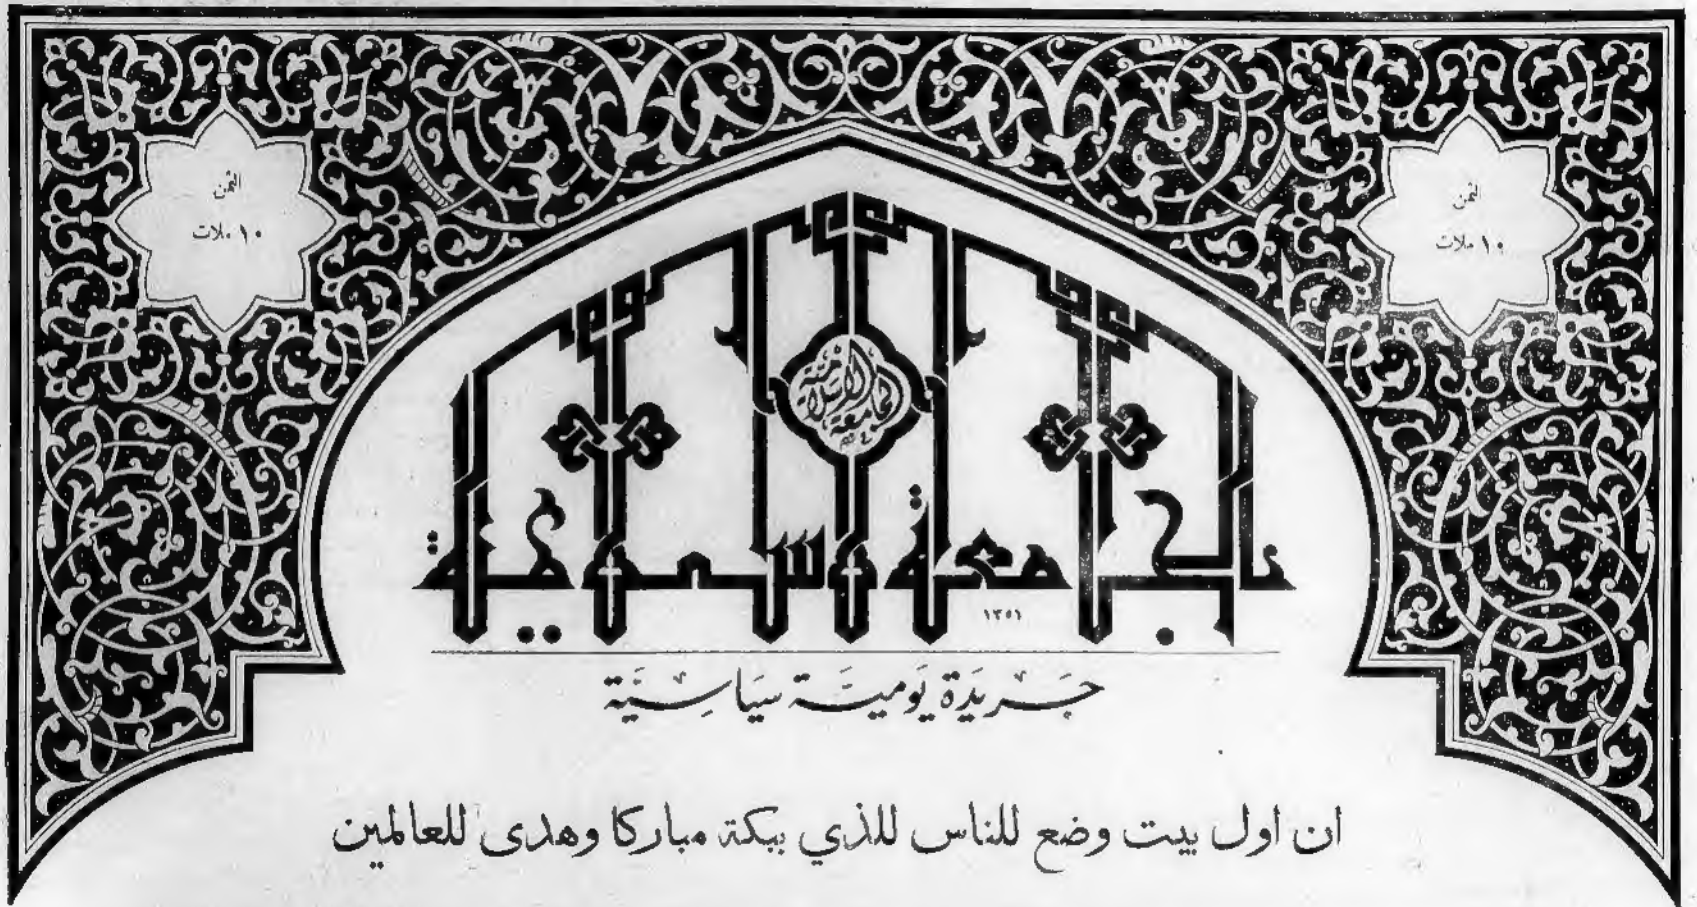 الثمن
١٠ ملات
الثمن
١٠ ملات
الجامعة الاسلامية
الجامعة الاسلامية
١٣٥١
جَريدَة يَوميَّة سيَاسِيَّة
ان اول بيت وضع للناس للذي ببكة مباركا وهدى للعالمين